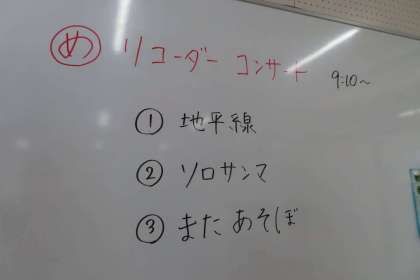 め リコーダー コンサート 9:10〜
① 地平線
② ソロサンマ
③ またあそぼ